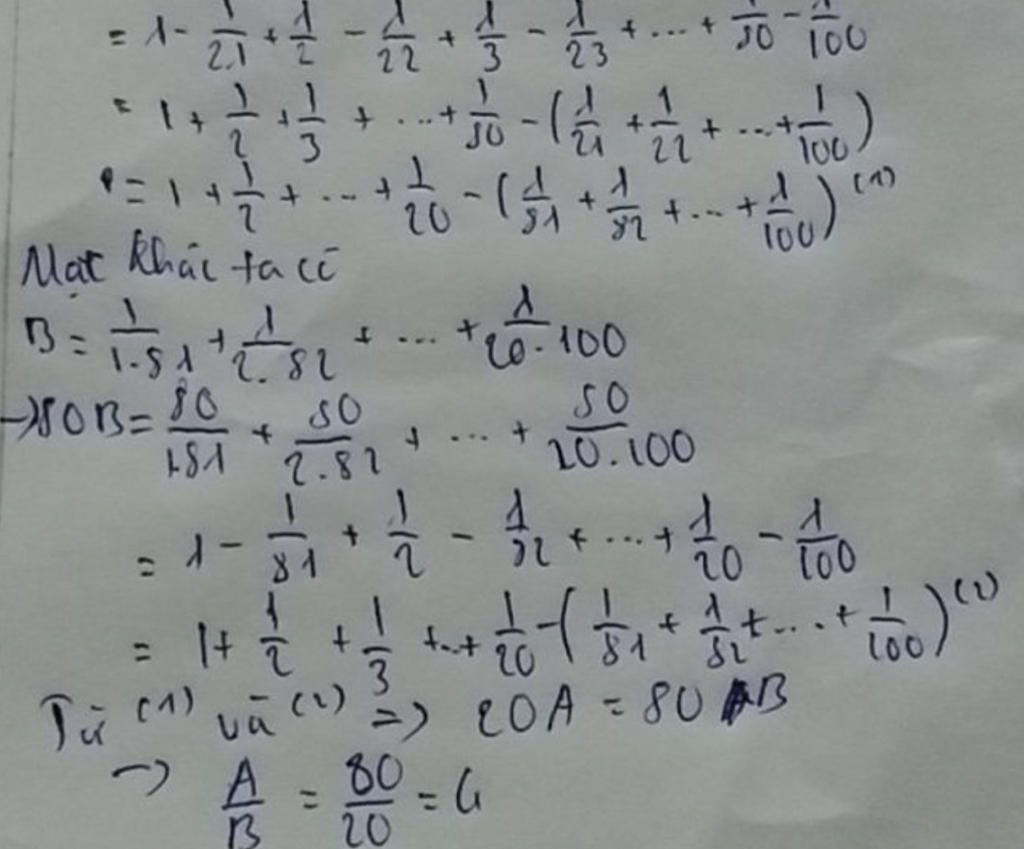 = 1 - 1/21 + 1/2 - 1/22 + 1/3 - 1/23 + ... + 1/80 - 1/100
= 1 + 1/2 + 1/3 + ... + 1/80 - (1/21 + 1/22 + ... + 1/100)
= 1 + 1/2 + ... + 1/20 - (1/81 + 1/82 + ... + 1/100) (1)
Mặt khác ta có
B = 1/1.81 + 1/2.82 + ... + 1/20.100
→ 80B = 80/1.81 + 80/2.82 + ... + 80/20.100
= 1 - 1/81 + 1/2 - 1/82 + ... + 1/20 - 1/100
= 1 + 1/2 + 1/3 + ... + 1/20 - (1/81 + 1/82 + ... + 1/100) (2)
Từ (1) và (2) => 20A = 80B
→ A/B = 80/20 = 4